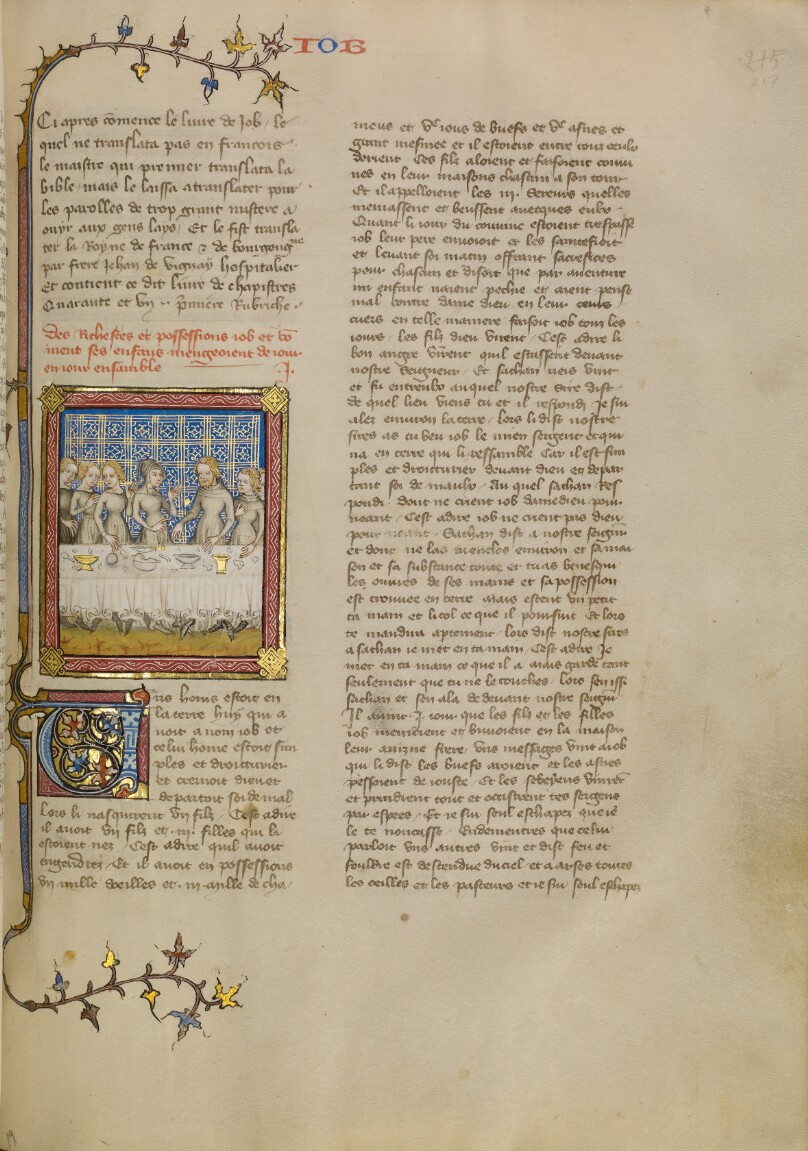 IOB
215
217
Ci apres cōmence le liure de Job. le
quel ne translata pas en francois
le maistre qui premier translata la
bible. mais le laissa a translater pour
les parolles de trop grant mistere a
ouyr aux gens lays. Et le fist transla
ter la Royne de france ⁊ de bourgongne
par frere Jehan de vignay hospitalier
et contient ce dit liure de chapistres
Quarante et vij. p̄miere Rubriche.
Des Richesses et possessions iob et cō
ment ses enfans mengeoient de iour
en iour ensamble .I.
Uns homs estoit en
la terre huy qui a
uoit a nom iob et
celui home estoit sim
ples et droicturier
et cremoit dieu et
departoit soi de mal
Lors li nasquirent vij filz. Cest adire
il auoit vij filz et .iij. filles qui li
estoient nez. Cest adire quil auoit
engendrez. Et il auoit en possessions
vij mille oeilles et .iij. mille de cha
meus et vͨ ious de buefs et vͨ asnes et
grant mesniee et il estoient entre tous ceulx
dorient. Ces filz aloient et faisoient conui
ues en leur maisons chascun a son tour
Et il appelloient les iij. Sereurs quelles
meniassent et beussent auecques eulx.
Quant li iour du conuiue estoient trespasse
iob leur pere enuoioit et les saintefioit
et leuant soi matin offrant sacrefices
pour chascun et disoit que par auenture
mi enfant naient pechie et aient pense
mal contre dame dieu en leur
cuers en telle maniere faisoit iob tous les
iours. les filz dieu virent. Cest adire li
bon angre virrent quil estassent deuant
nostre seigneur. Et sathan neis vint
et fu entreulx auquel nostre sire dist.
de quel lieu viens tu et il respondi. Je sui
alez enuiron la terre. lors li dist nostre
sires as tu veu iob le mien sergent et qui
na en terre qui li ressamble Car il est sim
ples et droicturier deuant dieu et depar
tant soi de maulx. Au quel sathan Res
pondi. dont ne crient iob damedieu pour
neant. Cest adire iob ne crient pas dieu
pour neant. Sathan dist a nostre seign̄r
et dont ne las tu enclos enuiron et sa mai
son et sa substance toute et tu as benesqui
les ouures de ses mains et sa possession
est creuuee en terre mais estent vn petit
ta main et li tol ce que il poursuit Et lors
te maudira apertement. lors dist nostre sires
a sathan ie met en ta main. Cest adire Je
met en ta main ce que il a mais garde tant
seulement que tu ne le touches. lors sen issi
sathan et sen ala de deuant nostre seign̄r
Il auint .I. iour que les filz et les filles
iob menioient et buuoient en la maison
leur ainsne frere. Vns messages vint a iob
qui li dist les buefs aroient et les asnes
pessoient de iouste. Et les sebeyens vinrēt
et prendirent tout et occistrent tes sergens
par espees. Et ie sui seul eschapez que ie
le te noncasse. Endementres que celui
parloit vns autres vint et dist feu et
fouldre est descendue du ciel et a arses toutes
les oeilles et les pasteurs et ie sui seul eschapez